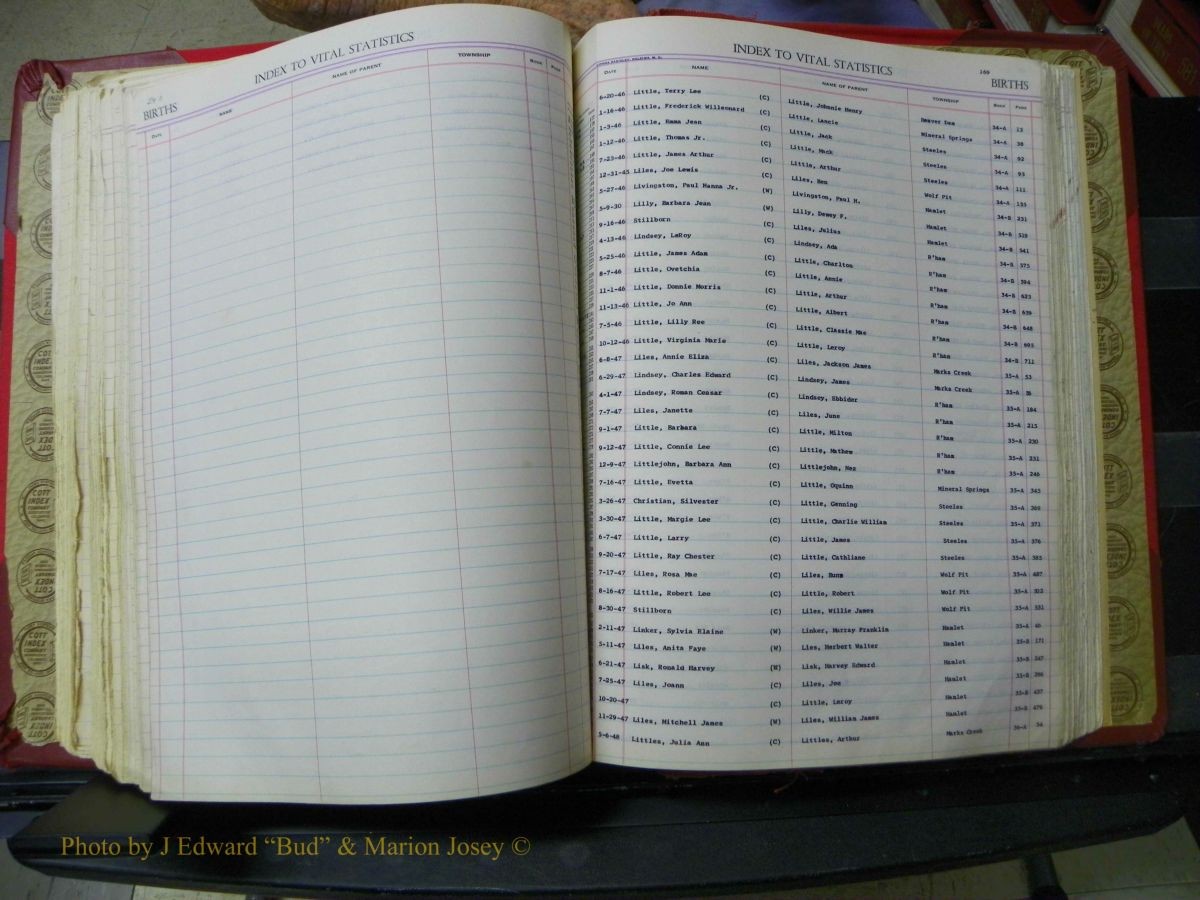 INDEX TO VITAL STATISTICS
BIRTHS
DATE NAME NAME OF PARENT TOWNSHIP BOOK PAGE
INDEX TO VITAL STATISTICS
169
BIRTHS
DATE NAME NAME OF PARENT TOWNSHIP BOOK PAGE
6-20-46 Little, Terry Lee (C) Little, Johnnie Henry Beaver Dam 34-A 13
1-16-46 Little, Frederick Willeonard (C) Little, Lancie Mineral Springs 34-A 38
1-3-46 Little, Hama Jean (C) Little, Jack Steeles 34-A 92
1-12-46 Little, Thomas Jr. (C) Little, Mack Steeles 34-A 93
7-23-46 Little, James Arthur (C) Little, Arthur Steeles 34-A 111
12-31-45 Liles, Joe Lewis (C) Liles, Ben Wolf Pit 34-A 135
5-27-46 Livingston, Paul Hanna Jr. (W) Livingston, Paul H. Hamlet 34-B 231
5-9-30 Lilly, Barbara Jean (W) Lilly, Dewey F. Hamlet 34-B
9-16-46 Stillborn (C) Liles, Julius Hamlet 34-B 541
4-13-46 Lindsey, LaRoy (C) Lindsey, Ada R'ham 34-B 575
5-25-46 Little, James Adam (C) Little, Charlton R'ham 34-B 594
8-7-46 Little, Ovetchia (C) Little, Annie R'ham 34-B 623
11-1-46 Little, Donnie Morris (C) Little, Arthur R'ham 34-B 639
11-13-46 Little, Jo Ann (C) Little, Albert R'ham 34-B 648
7-5-46 Little, Lilly Ree (C) Little, Classie Mae R'ham 34-B 695
10-12-46 Little, Virginia Marie (C) Little, Leroy R'ham 34-B 711
6-8-47 Liles, Annie Eliza (C) Liles, Jackson James Marks Creek 35-A 53
6-29-47 Lindsey, Charles Edward (C) Lindsey, James Marks Creek 35-A
4-1-47 Lindsey, Roman Ceasar (C) Lindsey, Ebbider R'ham 35-A 184
7-7-47 Liles, Janette (C) Liles, June R'ham 35-A 215
9-1-47 Little, Barbara (C) Little, Milton R'ham 35-A 230
9-12-47 Little, Connie Lee (C) Little, Mathew R'ham 35-A 231
12-9-47 Littlejohn, Barbara Ann (C) Littlejohn, Nez R'ham 35-A 246
7-16-47 Little, Evetta (C) Little, Oquinn Mineral Springs 35-A 343
3-26-47 Christian, Silvester (C) Little, Genning Steeles 35-A 369
3-30-47 Little, Margie Lee (C) Little, Charlie William Steeles 35-A 371
6-7-47 Little, Larry (C) Little, James Steeles 35-A 376
9-20-47 Little, Ray Chester (C) Little, Cathliane Steeles 35-A 385
7-17-47 Liles, Rosa Mae (C) Liles, Bunn Wolf Pit 35-A 487
8-16-47 Little, Robert Lee (C) Little, Robert Wolf Pit 35-A
8-30-47 Stillborn (C) Liles, Willie James Wolf Pit 35-A 531
2-11-47 Linker, Sylvia Elaine (W) Linker, Murray Franklin Hamlet 35-A
5-11-47 Liles, Anita Faye (W) Les, Herbert Walter Hamlet 35-B 171
6-21-47 Lisk, Ronald Harvey (W) Lisk, Harvey Edward Hamlet 35-B
7-25-47 Liles, Joann (C) Liles, Joe Hamlet 35-B
10-20-47 (C) Little, Leroy Hamlet 35-B 437
11-29-47 Liles, Mitchell James (W) Liles, William James Hamlet 35-B 476
5-6-48 Littles, Julia Ann (C) Littles, Arthur Marks Creek 36-A 54
COTT INDEX COMPANY
Photo by J Edward “Bud” & Marion Josey ©